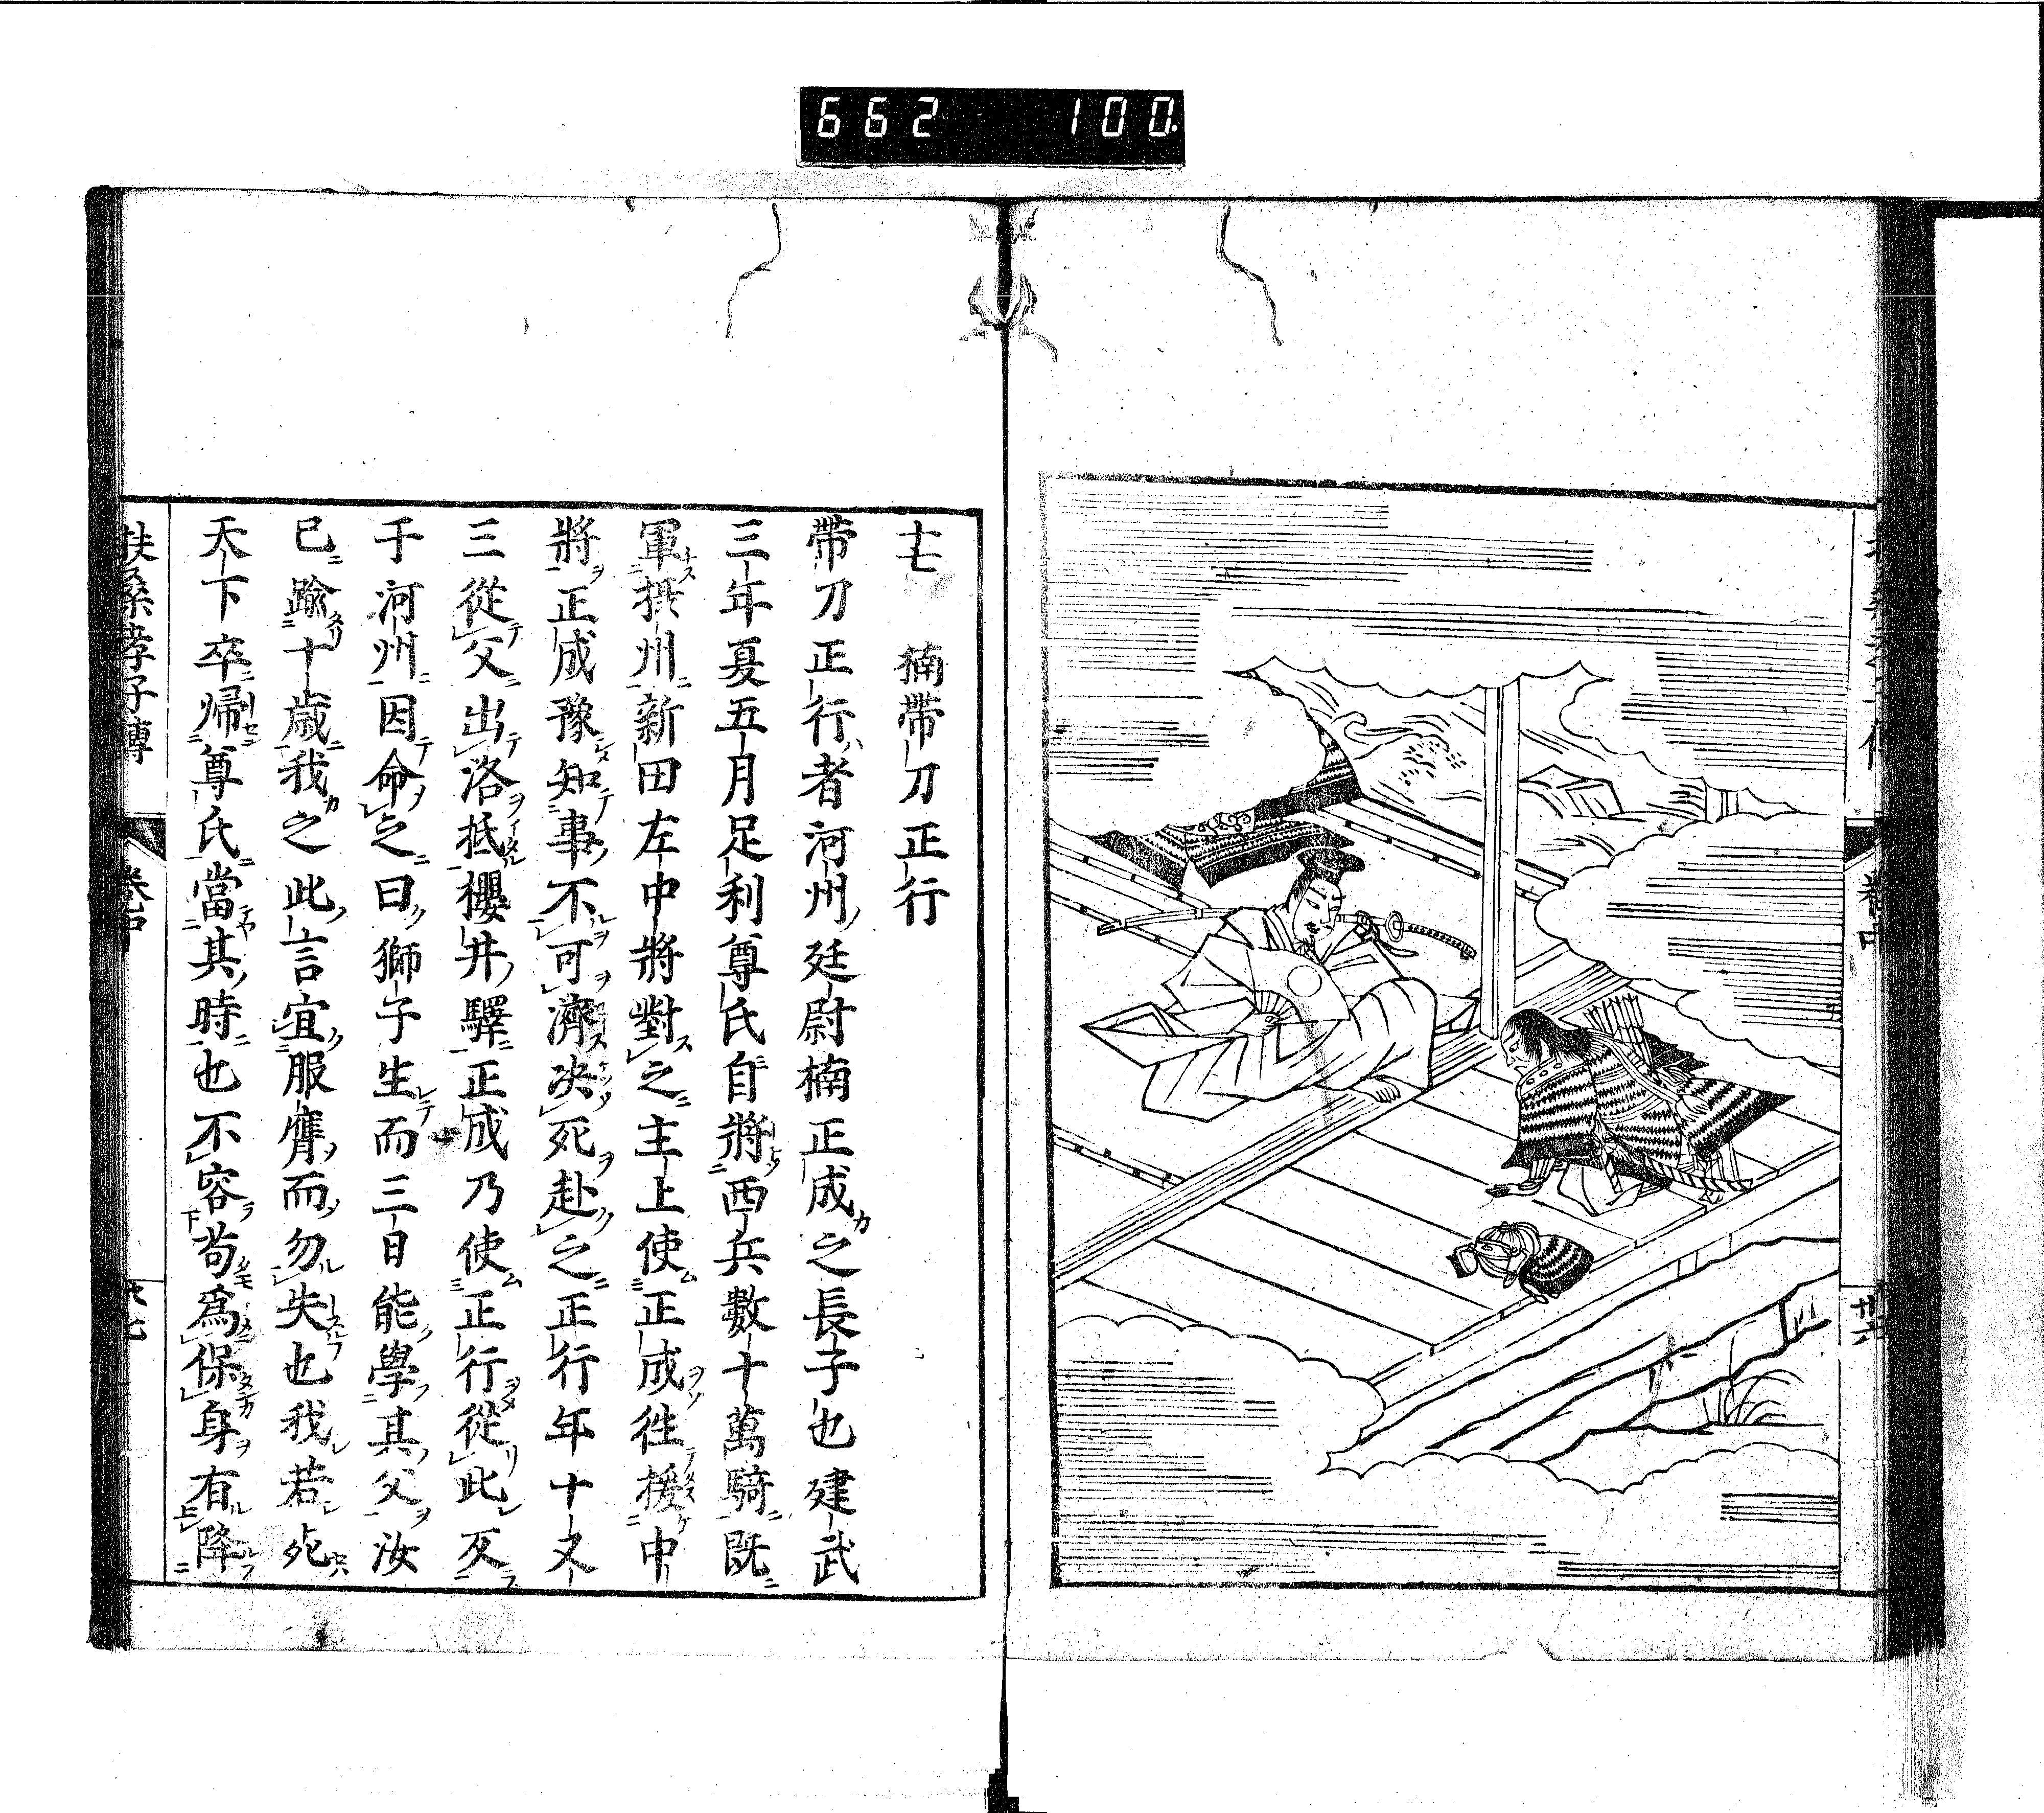 662 100.
卷中
廿六
十七 楠帶刀正行
帶刀正行者河州廷尉楠正成之長子也建武
三年夏五月足利尊氏自將西兵數十萬騎既
軍摂州新田左中將對之主上使正成往援中
將正成豫知事不可濟决死赴之正行年十又
三從父出洛抵櫻井驛正成乃使正行從此反
于河州因命之曰獅子生而三日能學其父汝
已踰十歲我之此言宜服膺而勿失也我若死
天下卒歸尊氏當其時也不容苟爲保身有降
扶桑孝子傳 卷中